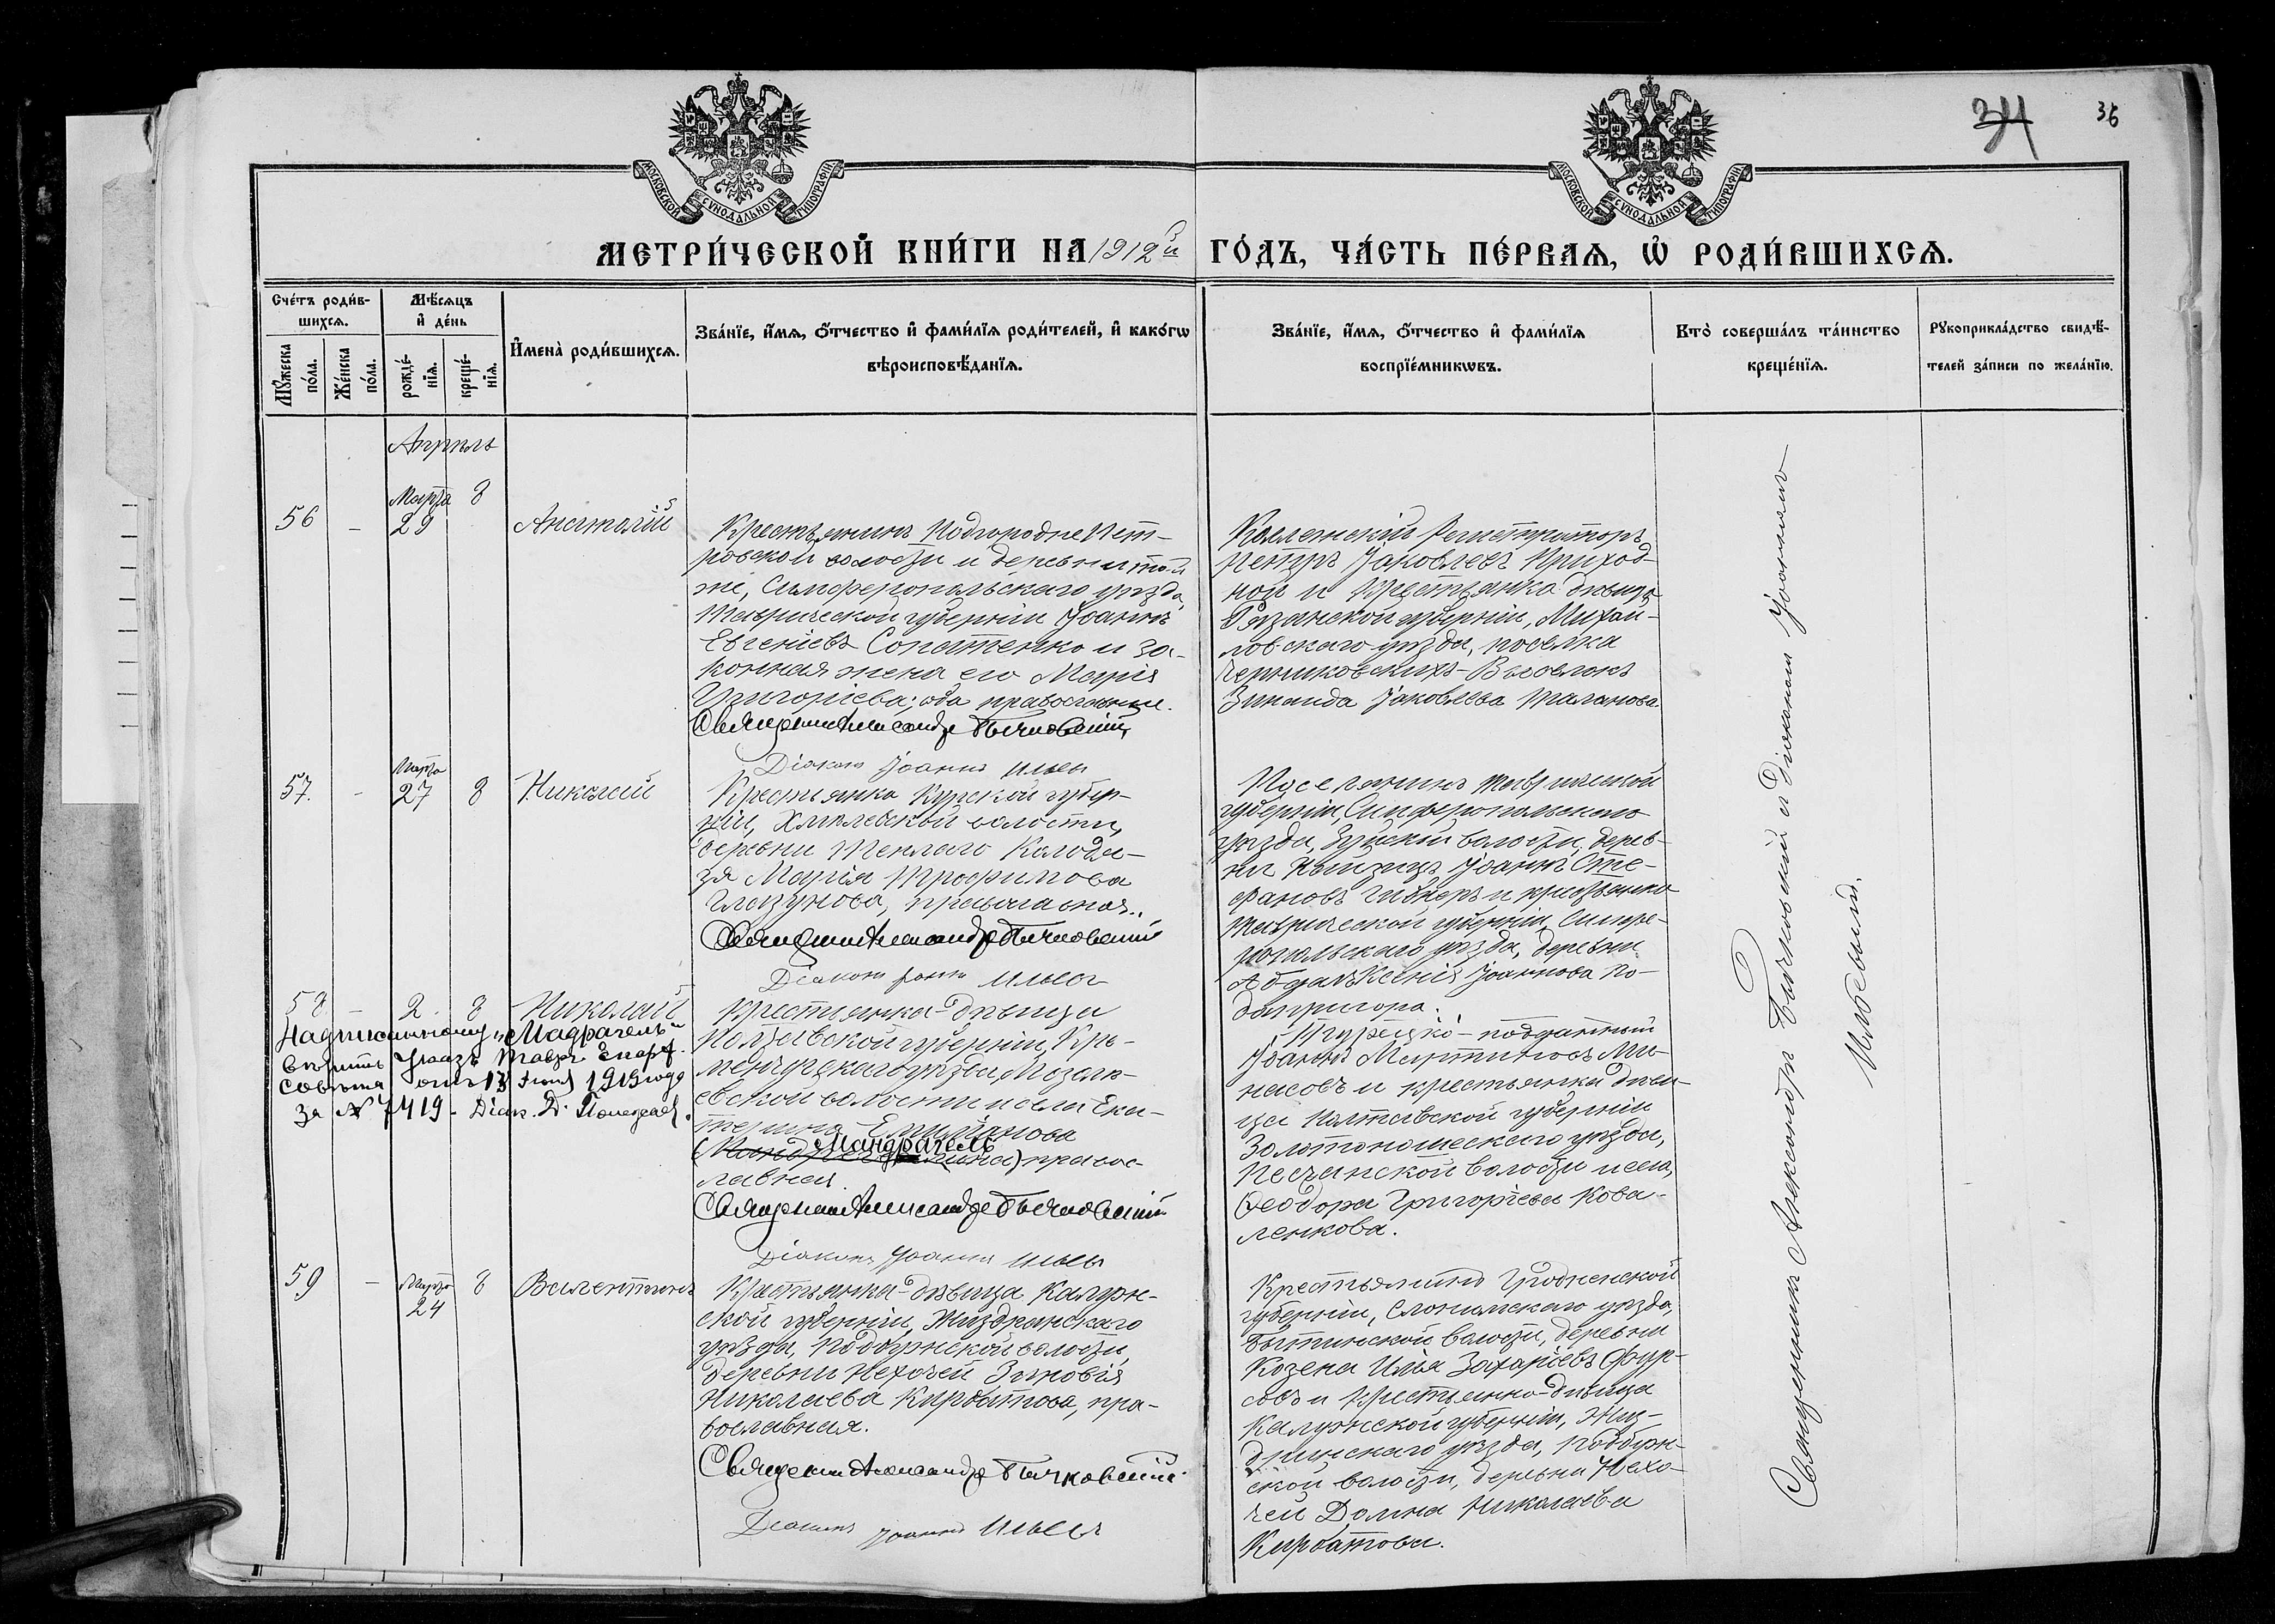 34 36
МОСКОВСКОЙ СУНОДАЛЬНОЙ ТИПОГРАФІИ
МОСКОВСКОЙ СУНОДАЛЬНОЙ ТИПОГРАФІИ
МЕТРИ́ЧЕСКОЙ КНИ́ГИ НА 1912й ГО́ДЪ, ЧА́СТЬ ПЕ́РВАѦ, Ѡ РОДИ́ВШИХСѦ.
Сче́тъ роди́в-
шихсѧ.
Мꙋ́жеска по́ла.
Же́нска по́ла.
Мѣ́сѧцъ
и де́нь
рожде́-
нїѧ.
креще́-
нїѧ.
И҆мена̀ роди́вшихсѧ.
Зва́нїе, и́мѧ, ѻ҆́тчество и҆ фами́лїѧ роди́телей, и҆ како́гѡ
вѣроисповѣ́данїѧ.
Зва́нїе, и́мѧ, ѻ҆́тчество и҆ фами́лїѧ
воспрїе́мникѡвъ.
Кто̀ соверша́лъ та́инство
креще́нїѧ.
Рꙋкоприкла́дство свидѣ́-
телей за́писи по жела́нїю.
Апрѣль
56 - Марта 29 8 Анатолій
Крестьянинъ Подгородне Пет-
ровской волости и деревни той
же, Симферопольскаго уѣзда,
Таврической губерніи Іоаннъ
Евгеніевъ Сопатенко и за-
конная жена его Марія
Григоріева; оба православные.
Священникъ Александръ Бычковскій
Діаконъ Іоаннъ Ильевъ
Коллежскій Регистраторъ
Петръ Іаковлевъ Приход-
ной и крестьянка дѣвица
Рязанской губерніи, Михай-
ловскаго уѣзда, поселка
Черниковскихъ-Выселокъ
Зинаида Іаковлева Таланова
57. - Марта 27 8 Николай
Крестьянка Курской губер-
ніи, Хмѣлевской волости,
деревни Теплаго Колоде-
зя Марія Трофимова
Глазунова, православная.
Священникъ Александръ Бычковскій
Діаконъ Іоаннъ Ильевъ
Поселянинъ Таврической
губерніи, Симферопольскаго
уѣзда, Зуйской волости, дерев-
ни Іоаннъ Сте-
фановъ и крестьянка
Таврической губерніи, Симфе-
ропольскаго уѣзда, деревни
Абдалъ Ксенія Іоаннова По-
допригора.
58 - 2. 8 Николай
Надписанному „Мадрагель“
вѣрить Указъ Тавр. Епарх.
Совѣта отъ 13 1919 года
за № 7419 - Діак. Д.
Крестьянка-дѣвица
Полтавской губерніи, Кре-
менчугскаго уѣзда,
евской волости и села Ека-
терина Емиліанова
Мандрагель
православная.
Священникъ Александръ Бычковскій
Діаконъ Іоаннъ Ильевъ
Турецко-подданный
Іоаннъ Мартиносъ Ми-
насовъ и крестьянка дѣви-
ца Полтавской губерніи
Золотоношскаго уѣзда,
Песчанской волости и села,
Ѳеодора Григоріева Кова-
ленкова.
59 - Марта 24 8 Валентинъ
Крестьянка-дѣвица Калуж-
ской губерніи, Жиздринскаго
уѣзда, Подбужской волости,
деревни Нехочей Зиновія
Николаева Курбатова, пра-
вославная.
Священникъ Александръ Бычковскій
Діаконъ Іоаннъ Ильевъ
Крестьянинъ Гродненской
губерніи, Слонимскаго уѣзда,
Бытинской волости, деревни
Козека Илья Захаріевъ Фур-
совъ и крестьянка-дѣвица
Калужской губерніи, Жиз-
дринскаго уѣзда, Подбуж-
ской волости, деревни Нехо-
чей Домна Николаева
Курбатова.
Священникъ Александръ Бычковскій и Діаконъ Іоаннъ
Ильевъ.